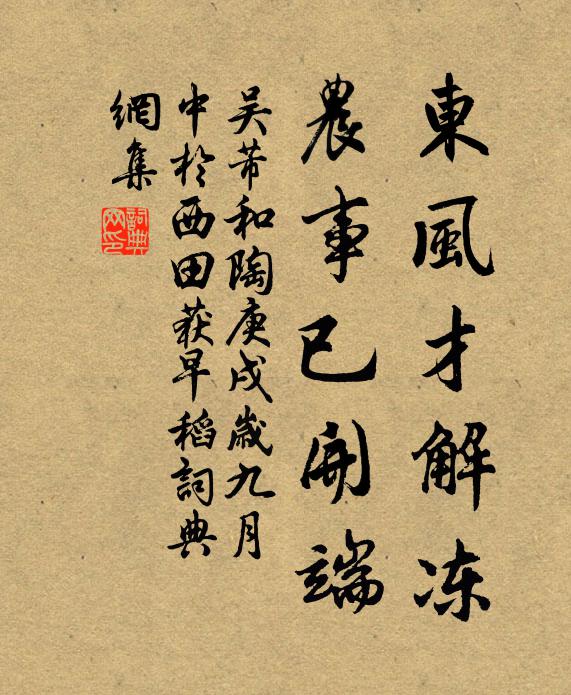 東風才解冻
農事已開端
吴芾和陶庚戌歲九月
中於西田获早稻詞典
網集
詞典网印